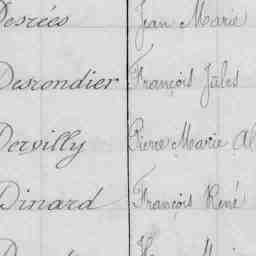 Desrées Jean Marie
Desrondier François Jules
Dervilly Pierre Marie Al
Dinard François René